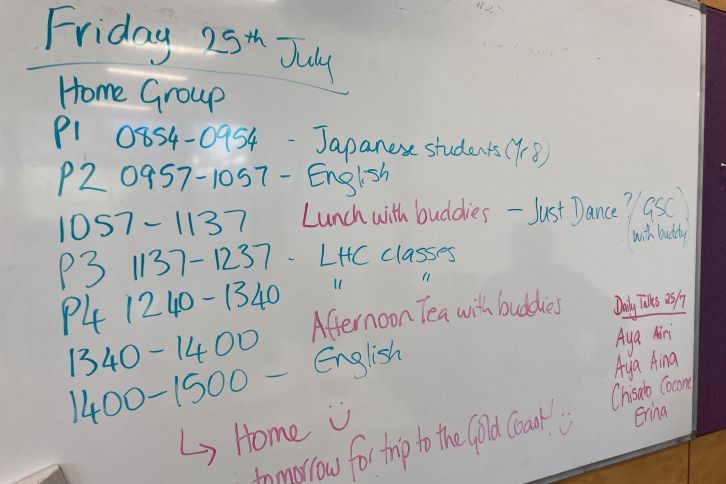 Friday 25th July
Home Group
P1 0854-0954 - Japanese students (Yr 8)
P2 0957-1057 - English
1057-1137 Lunch with buddies - Just Dance?/GSC (with buddy)
P3 1137-1237 - LHC classes
P4 1240-1340 " "
1340-1400 Afternoon Tea with buddies
1400-1500 - English
↳ Home
tomorrow for trip to the Gold Coast!
Daily Talks 25/7
Aya Airi
Aya Aina
Chisato Cocone
Erina